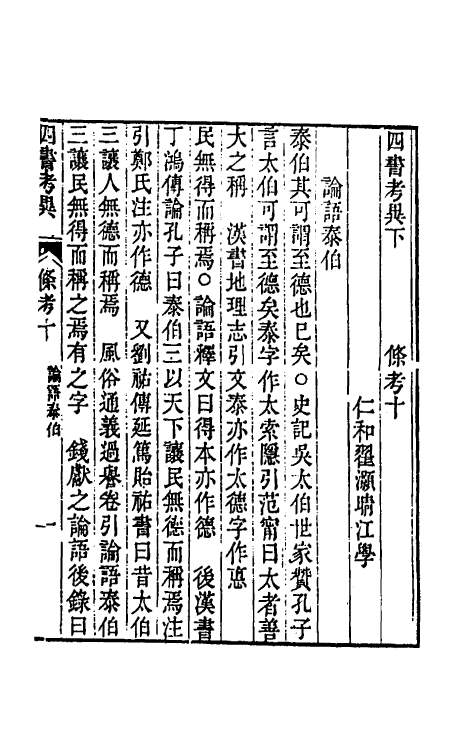 四書考異下　　　條考十
仁和翟灝晴江學
論語泰伯
泰伯其可謂至德也已矣○史記吳太伯世家贊孔子
言太伯可謂至德矣泰字作太索隱引范甯曰太者善
大之稱　漢書地理志引文泰亦作太德字作悳
民無得而稱焉○論語釋文曰得本亦作德　後漢書
丁鴻傳論孔子曰泰伯三以天下讓民無德而稱焉注
引鄭氏注亦作德　又劉祐傳延篤貽祐書曰昔太伯
三讓人無德而稱焉　風俗通義過譽卷引論語泰伯
三讓民無得而稱之焉有之字　錢獻之論語後錄曰
四書考異　條考十　論語泰伯　一